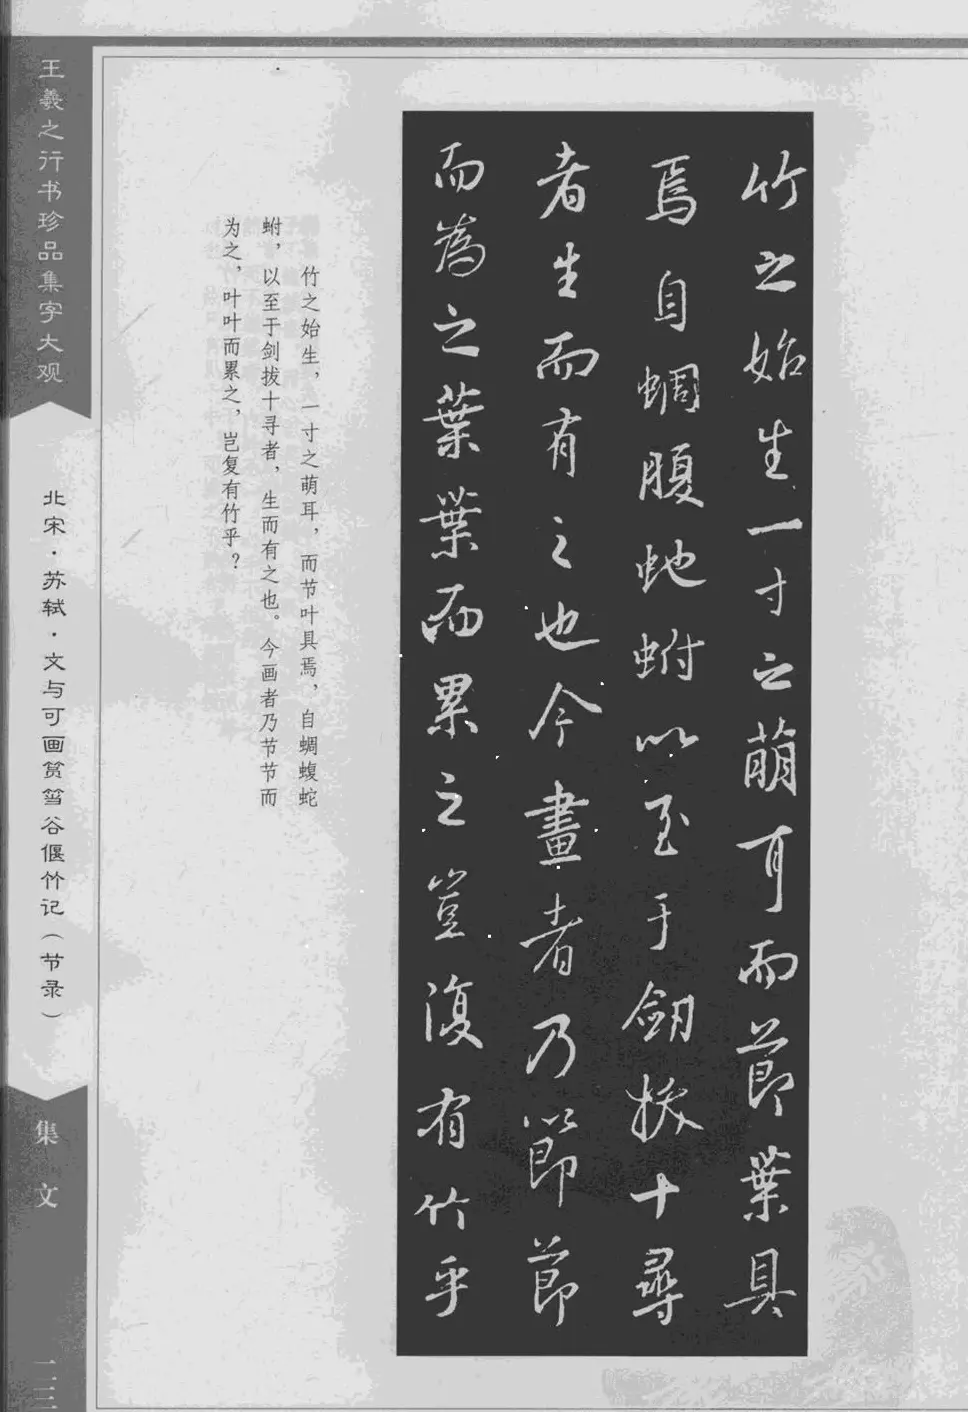 竹之始生一寸之萌耳而節葉具
焉自蜩腹虵蚹以至于劒拔十尋
者生而有之也今畫者乃節節
而為之葉葉而累之豈復有竹乎
竹之始生，一寸之萌耳，而节叶具焉，自蜩蝮蛇
蚹，以至于剑拔十寻者，生而有之也。今画者乃节节而
为之，叶叶而累之，岂复有竹乎？
王羲之行书珍品集字大观
北宋·苏轼·文与可画筼筜谷偃竹记（节录）
集文